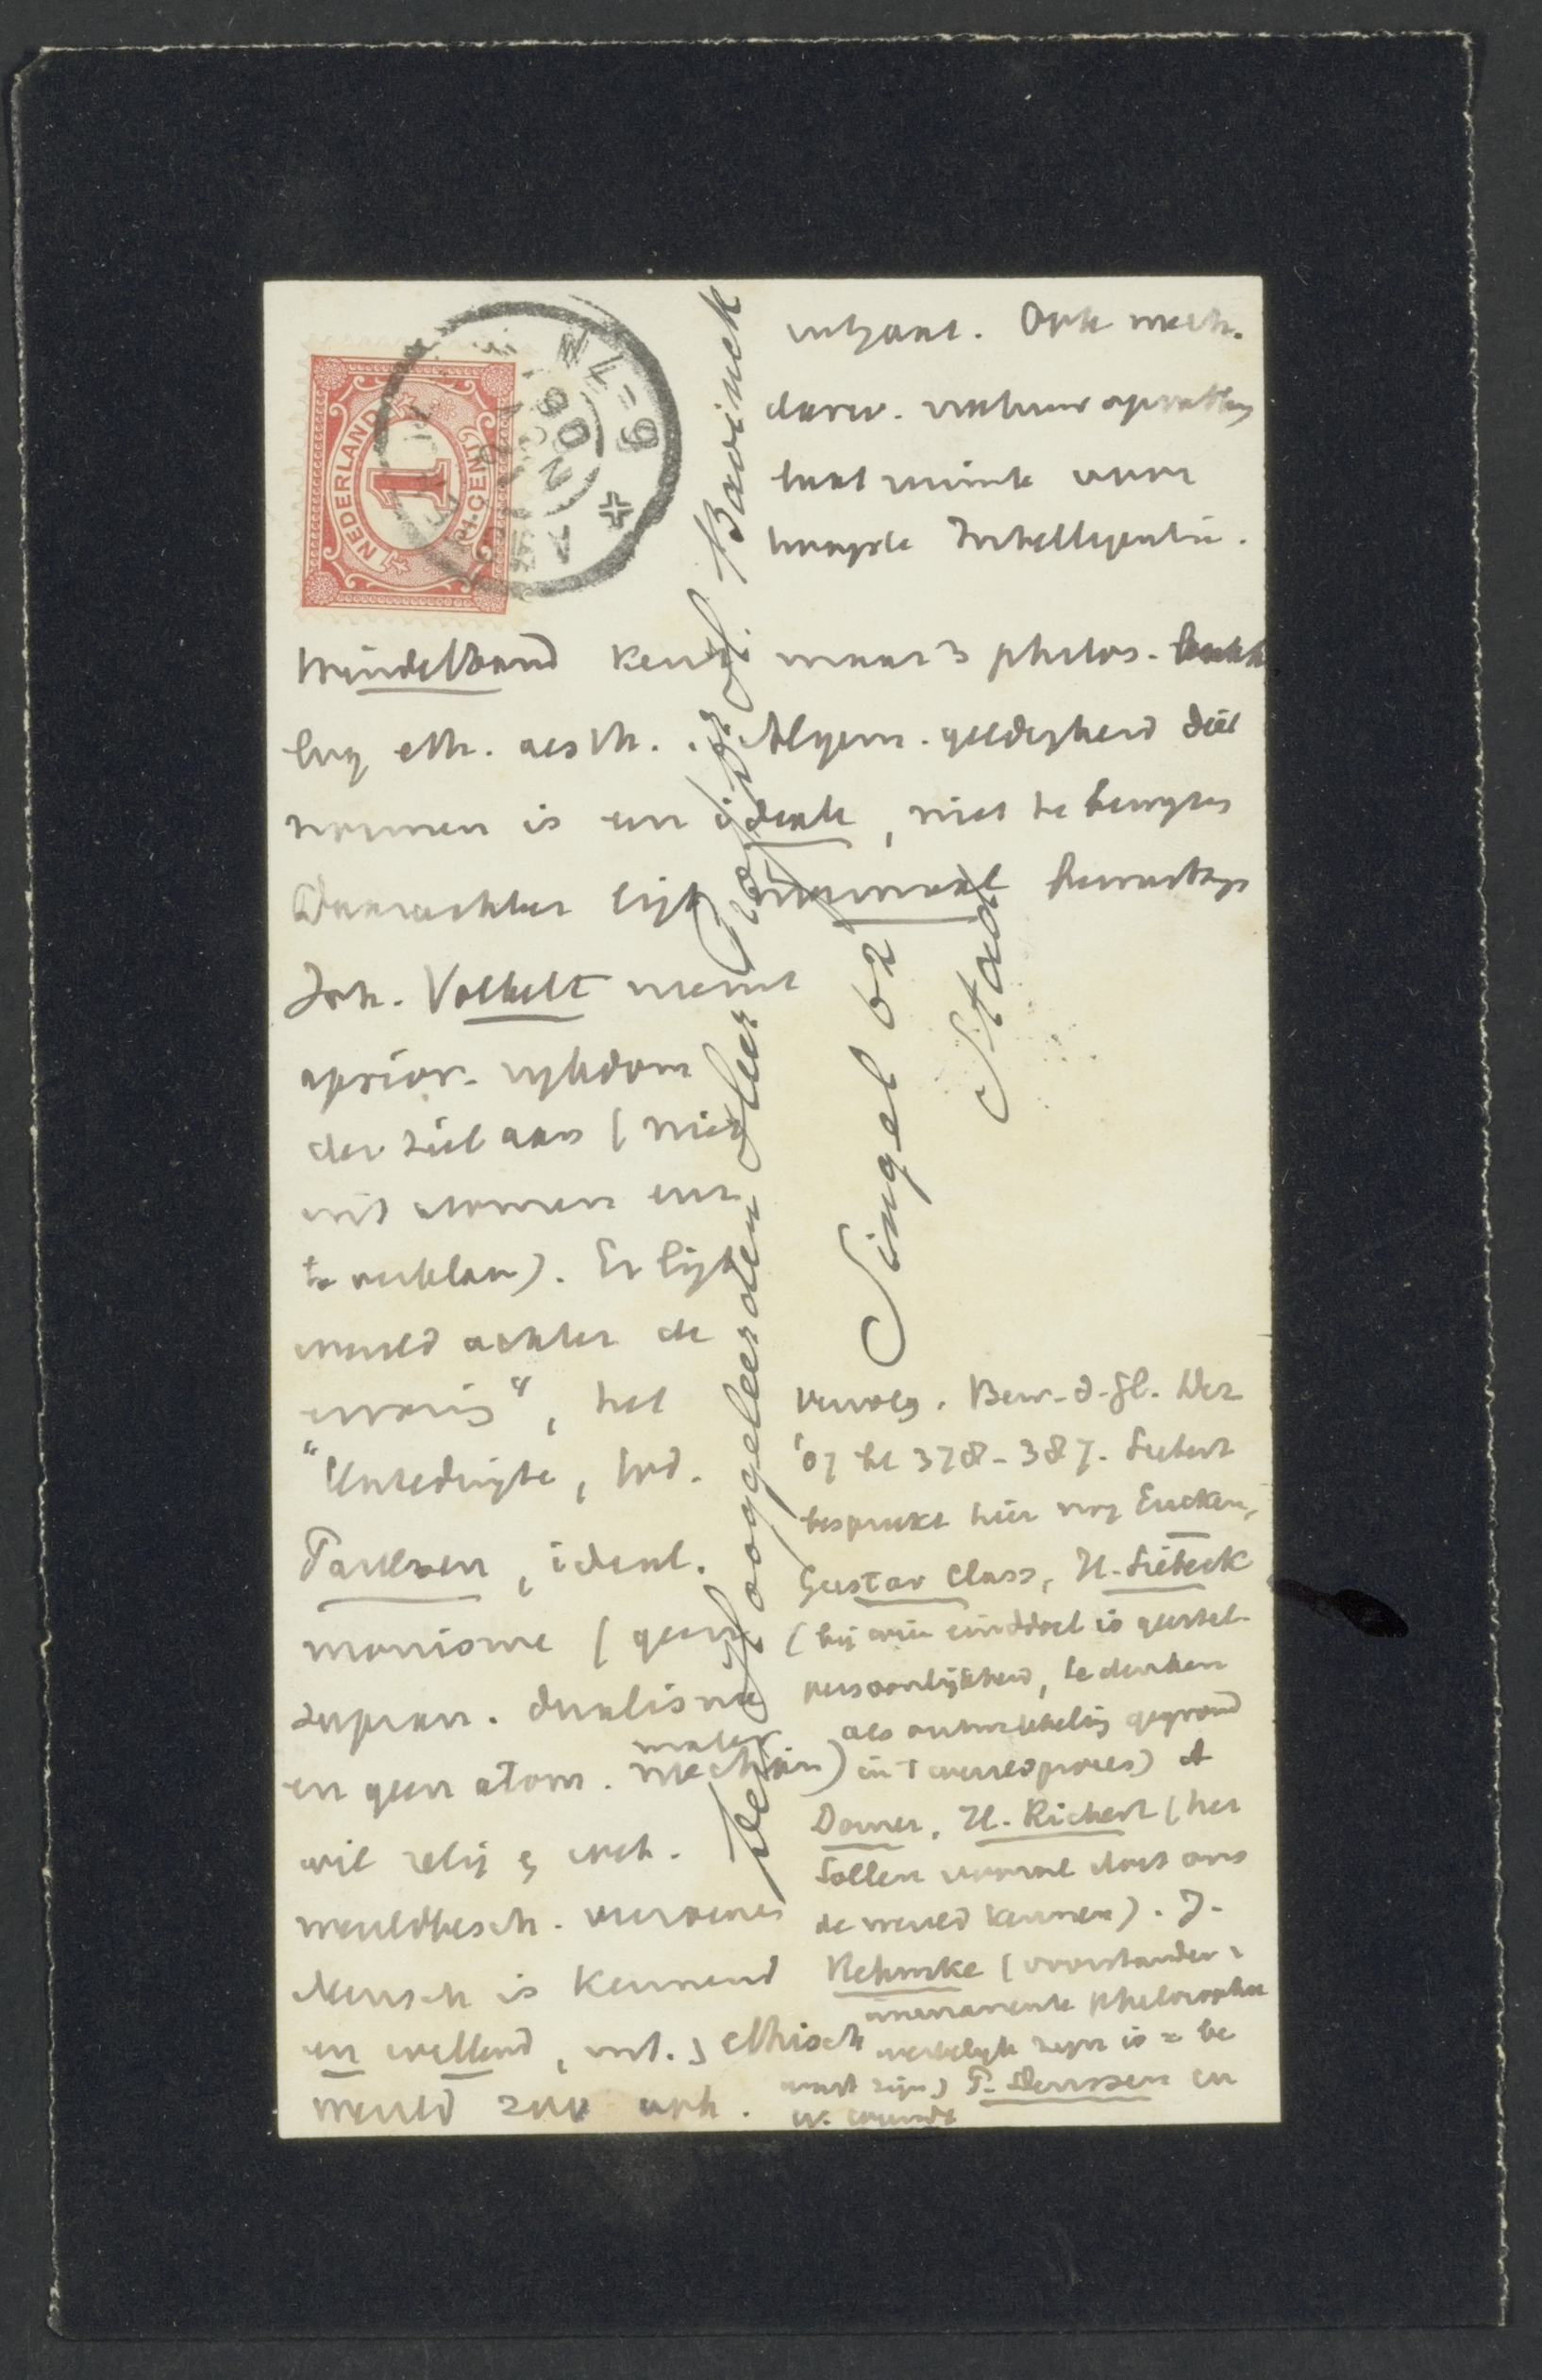 NEDERLAND
1
1 CENT
Den Hoogeleerden Heer Prof. Dr. H. Bavinck
Singel 62
Stad
Ook mech.
darw. natuuropvatting
laat ruimte voor
hoogste Intelligentie.
Windelband kent maar 3 philos.
log eth. aesth. Algem. geldigheid dier
normen is een ideale, niet te bewijzen
Daarachter ligt normaal bewustzijn
Joh. Volkelt neemt
aprior. rykdom
der ziel aan (niet
uit atomen enz.
te verklaren). Er ligt
wereld achter de
ervaring", het
"Unbedingte,
Paulsen, ideal.
monisme (geen
supran. dualisme
en geen atom. mater. mechan)
wil relig en wet.
wereldbesch.
Mensch is kennend
en willend, ethisch
wereld zou ook.
vervolg. Bew. d. Gl. Dez
'07 bl 378-387. Siebert
bespreekt hier nog Eucken,
Gustav Class, H. Siebeck
(bij wie einddoel is geestel.
persoonlijkheid, te denken
als ontwikkeling gegrond
in 't wereldproces) A
Dorner, H. Rickert (het
Sollen vooral doet ons
de wereld kennen). J.
Rehmke (voorstander v
immanente philosophie
werkelijk zijn is = be
wust zijn) P. Deussen en
W. Wundt